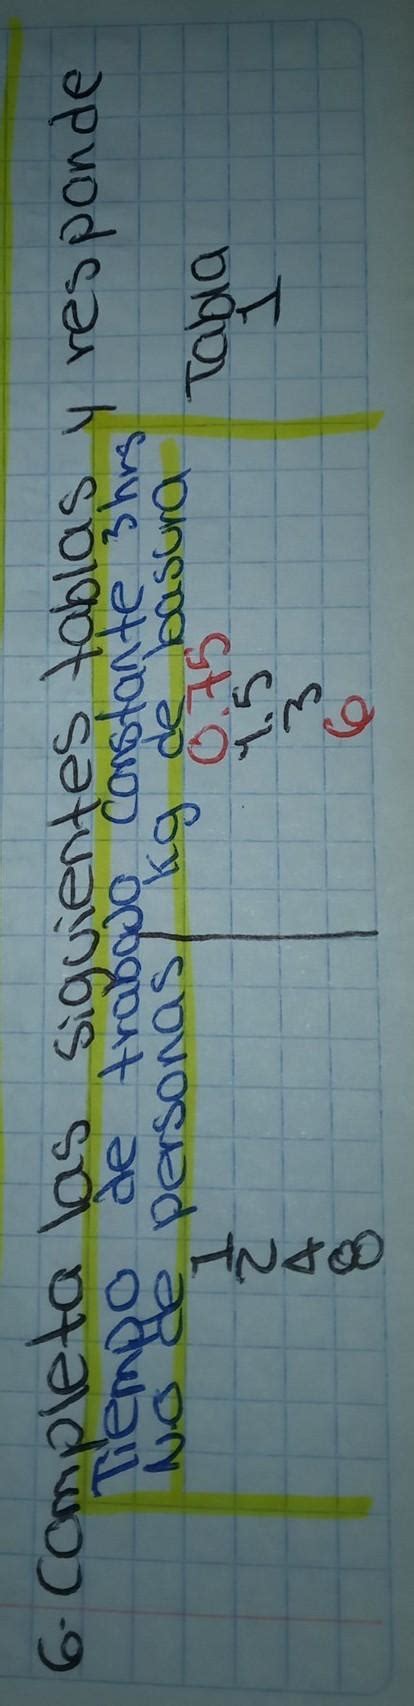 6. Completa las siguientes tablas y responde
Tiempo de trabajo constante 3hrs
No de personas kg de basura
1 0.75 Tabla
2 1.5 1
4 3
8 6